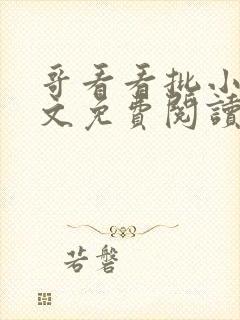 哥看看批小
文免費閱讀
若磐